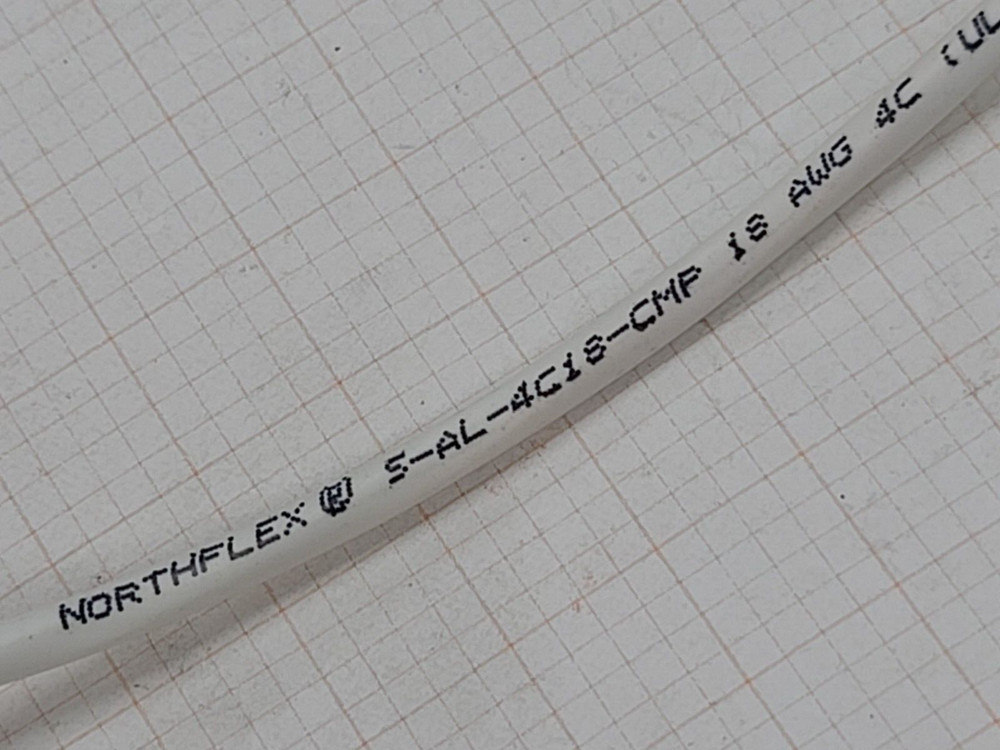 NORTHFLEX ® S-AL-4C18-CMP 18 AWG 4C (UL